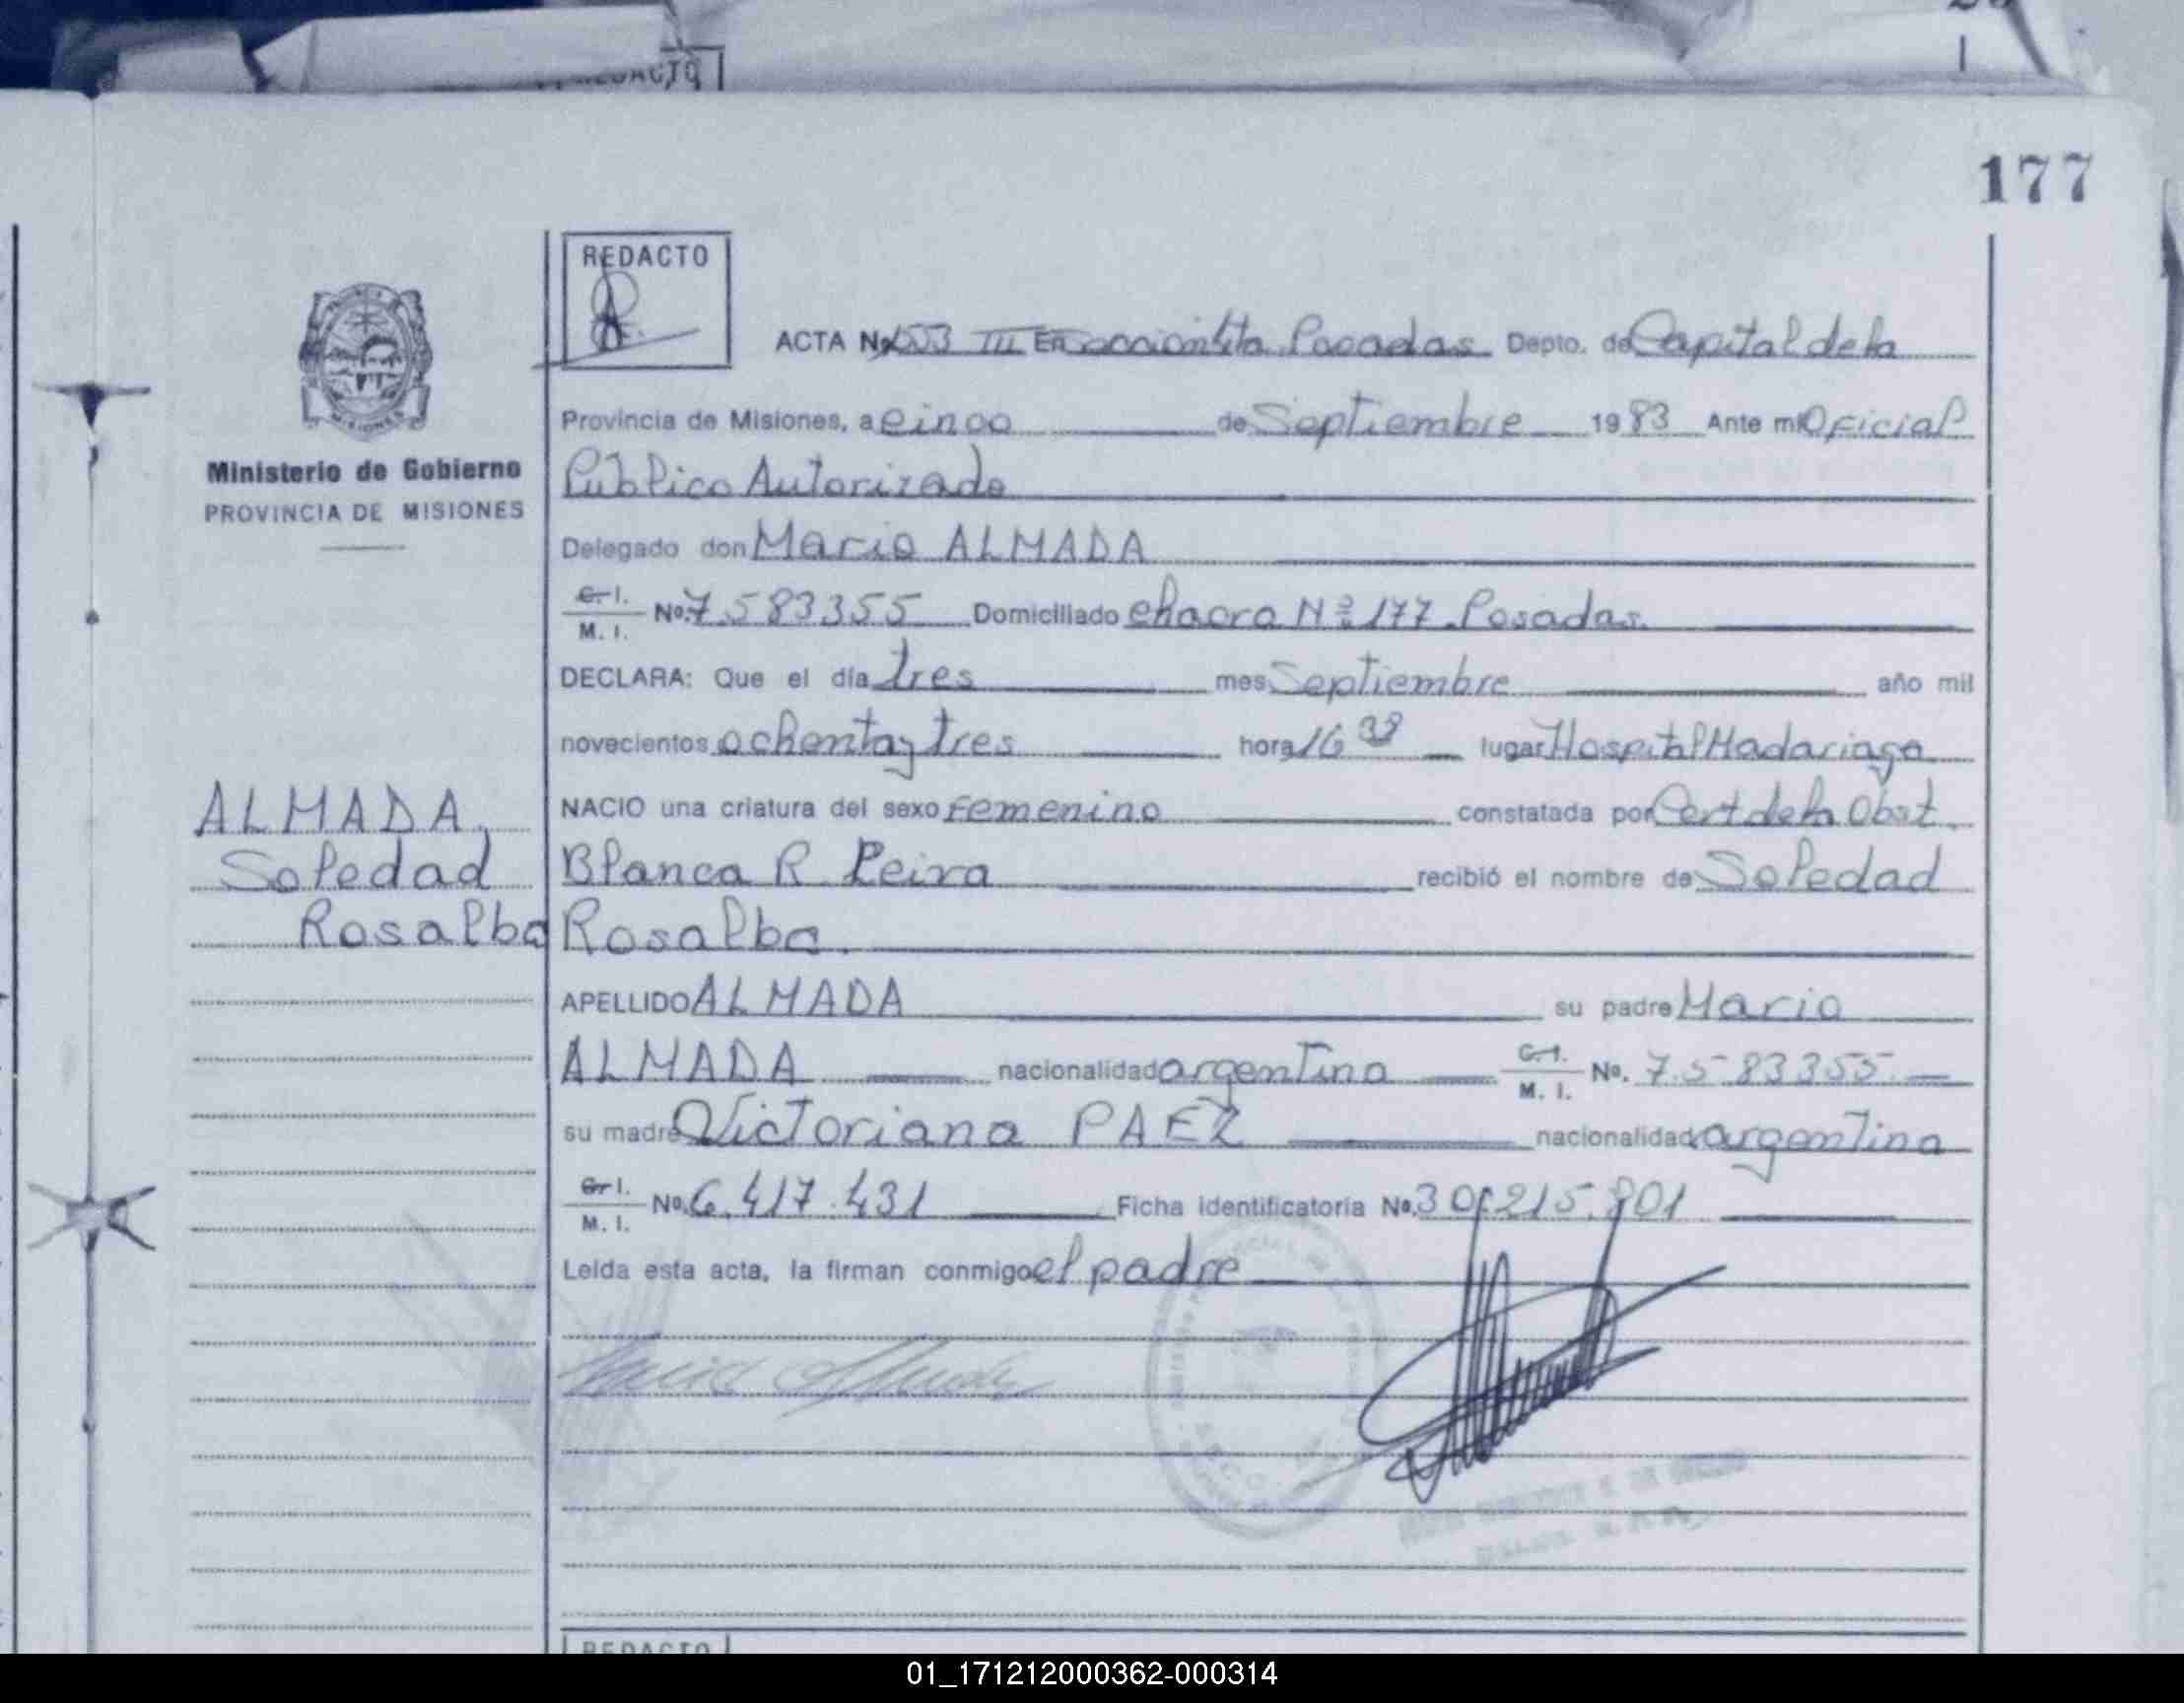 REDACTO
177
REDACTO
ACTA Nº 553 III En Posadas Depto. de Capital de la
Provincia de Misiones, a cinco de Septiembre 1983 Ante mí Oficial
Ministerio de Gobierno
PROVINCIA DE MISIONES
Público Autorizado
Delegado don Mario ALMADA
C. I.
M. I. Nº. 7.583355 Domiciliado chacra Nº 177 Posadas.
DECLARA: Que el día tres mes Septiembre año mil
novecientos ochenta y tres hora 16 lugar Hospital Madariaga
NACIO una criatura del sexo Femenino constatada por Cert de la Obst.
ALMADA,
Soledad
Rosalba
Blanca R. recibió el nombre de Soledad
Rosalba.
APELLIDO ALMADA su padre Mario
ALMADA nacionalidad argentina C. I.
M. I. Nº. 7.583355
su madre Victoriana PAEZ nacionalidad argentina
C. I.
M. I. Nº. 6.417.431 Ficha identificatoria Nº. 30.215.801
Leida esta acta, la firman conmigo el padre
REDACTO
01_171212000362-000314